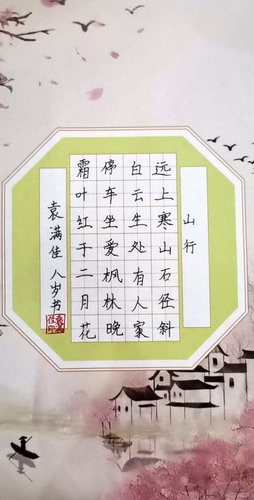 山行
远上寒山石径斜
白云生处有人家
停车坐爱枫林晚
霜叶红于二月花
袁满佳 八岁书